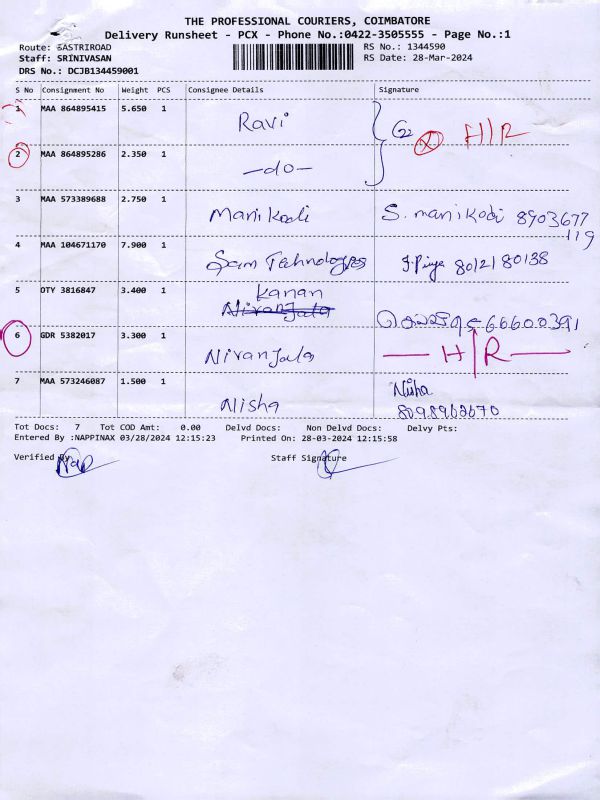 THE PROFESSIONAL COURIERS, COIMBATORE
Delivery Runsheet - PCX - Phone No.:0422-3505555 - Page No.:1
Route: SASTRIROAD
RS No.: 1344590
Staff: SRINIVASAN
RS Date: 28-Mar-2024
DRS No.: DCJB134459001
S No Consignment No Weight PCS Consignee Details Signature
1 MAA 864895415 5.650 1 Ravi
X H/R
2 MAA 864895286 2.350 1 -do-
3 MAA 573389688 2.750 1 Manikodi S. manikodi 8903677
119
4 MAA 104671170 7.900 1 Sam Technologies J.Priya 8012180138
5 OTY 3816847 3.400 1 Kanan
Niranjala
66600391
6 GDR 5382017 3.300 1 Niranjala H/R
7 MAA 573246087 1.500 1 Nisha Nisha
Tot Docs: 7 Tot COD Amt: 0.00 Delvd Docs: Non Delvd Docs: Delvy Pts:
Entered By :NAPPINAX 03/28/2024 12:15:23 Printed On: 28-03-2024 12:15:58
Verified By Staff Signature